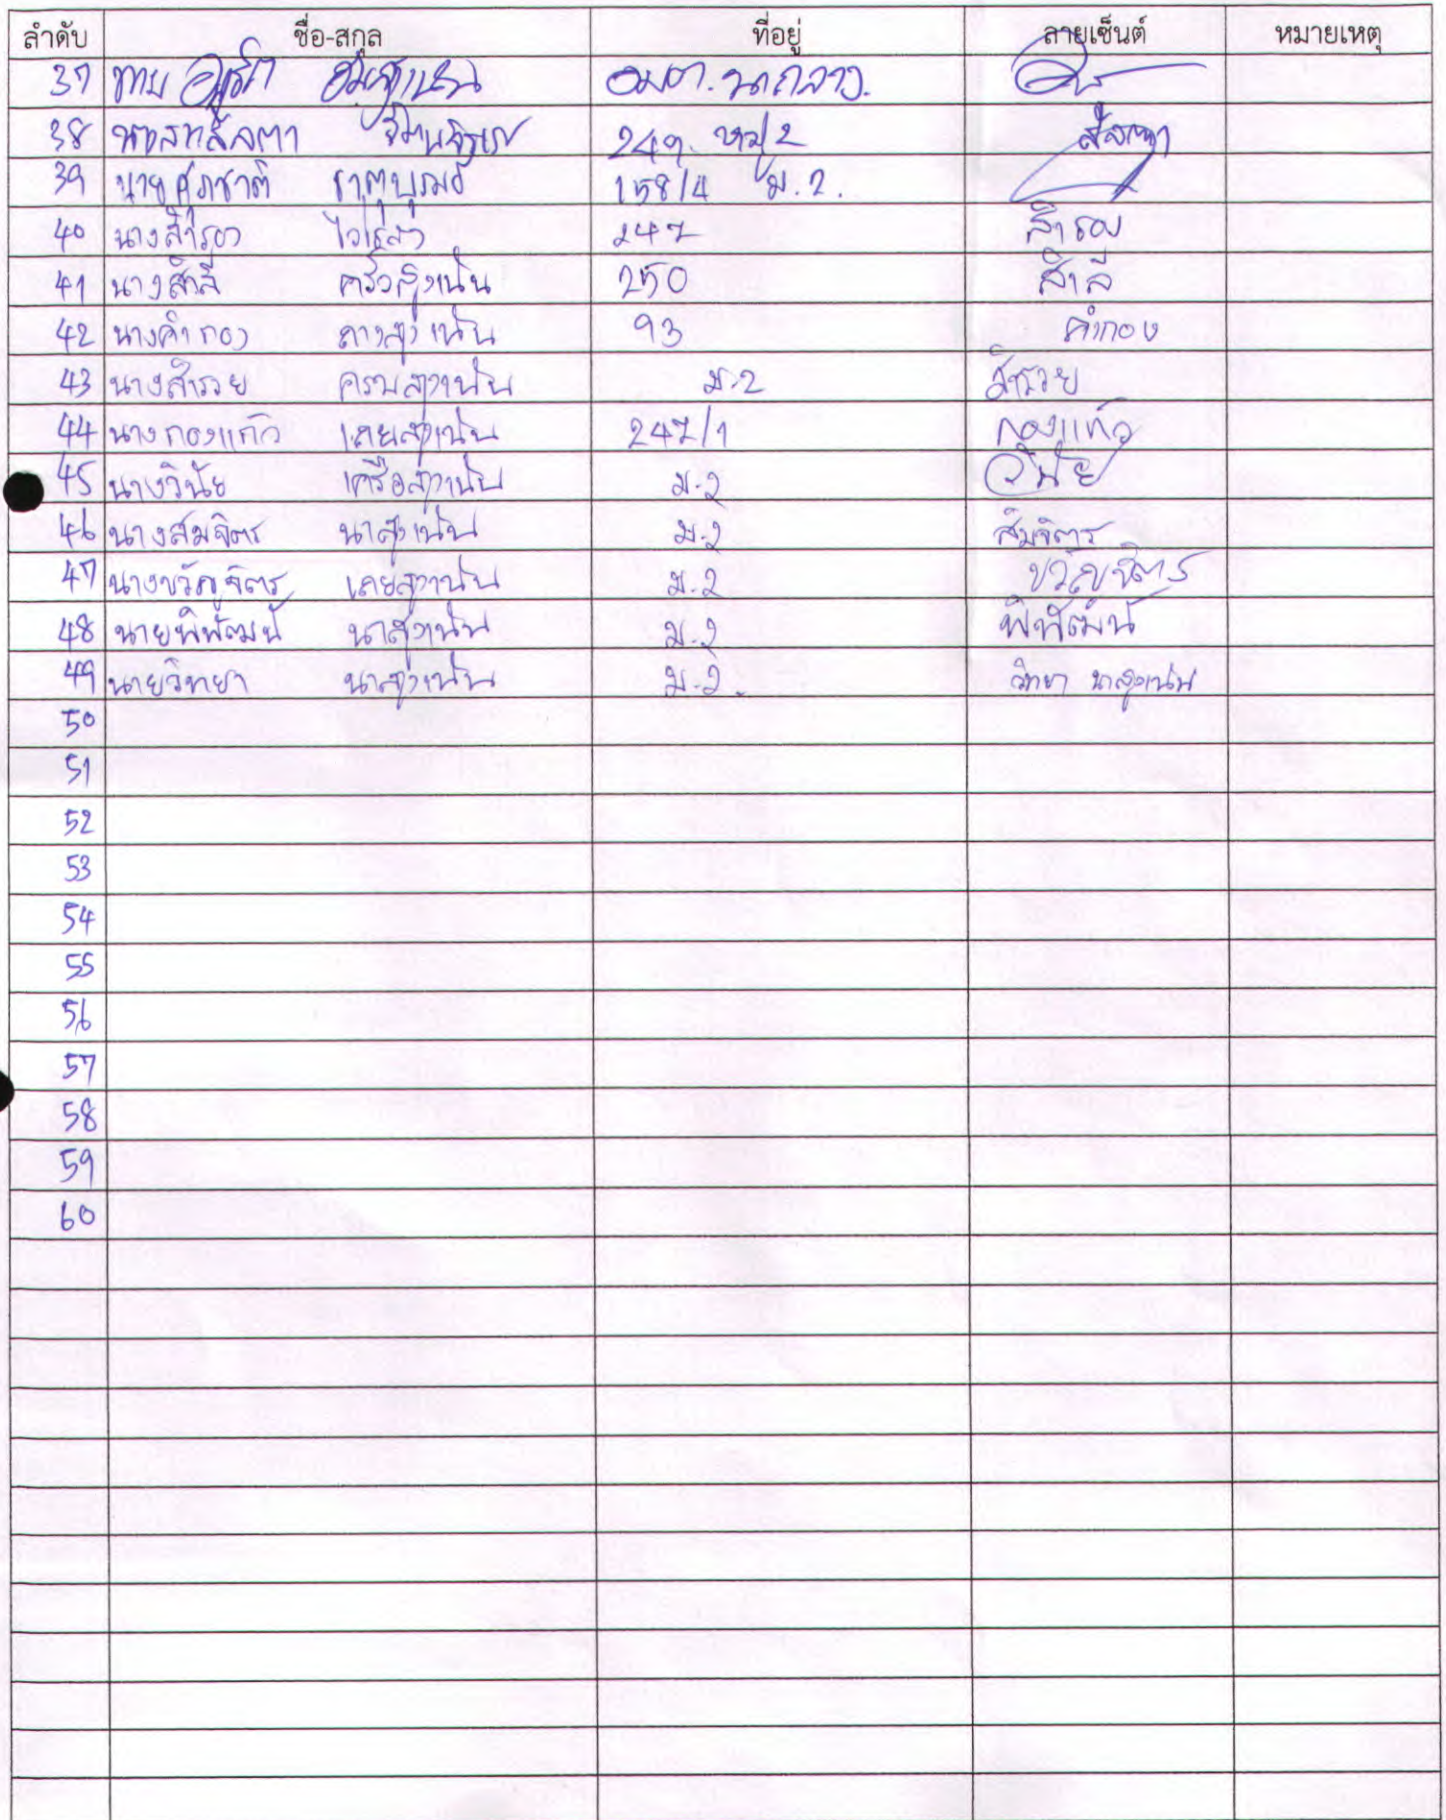 ลำดับ ชื่อ-สกุล ที่อยู่ ลายเซ็นต์ หมายเหตุ
37 นาย อบต. นากลาง.
38 นางสาวสัลตา 249 หมู่ 2 สัลตา
39 นายศุภชาติ ธาตุบุรมย์ 158/4 ม.2.
40 นางสำรอง 247 สำรอง
41 นางสำลี ครึ่งสูงเนิน 250 สำลี
42 นางคำกอง สูงเนิน 93 คำกอง
43 นางสำรวย ครบสูงเนิน ม.2 สำรวย
44 นางกองแก้ว เคยสูงเนิน 247/1 กองแก้ว
45 นางวินัย เครือสูงเนิน ม.2 วินัย
46 นางสมจิตร นาสูงเนิน ม.2 สมจิตร
47 นางขวัญจิตร เคยสูงเนิน ม.2 ขวัญจิตร
48 นายพิพัฒน์ นาสูงเนิน ม.2 พิพัฒน์
49 นายวิทยา นาสูงเนิน ม.2. วิทยา นาสูงเนิน
50
51
52
53
54
55
56
57
58
59
60